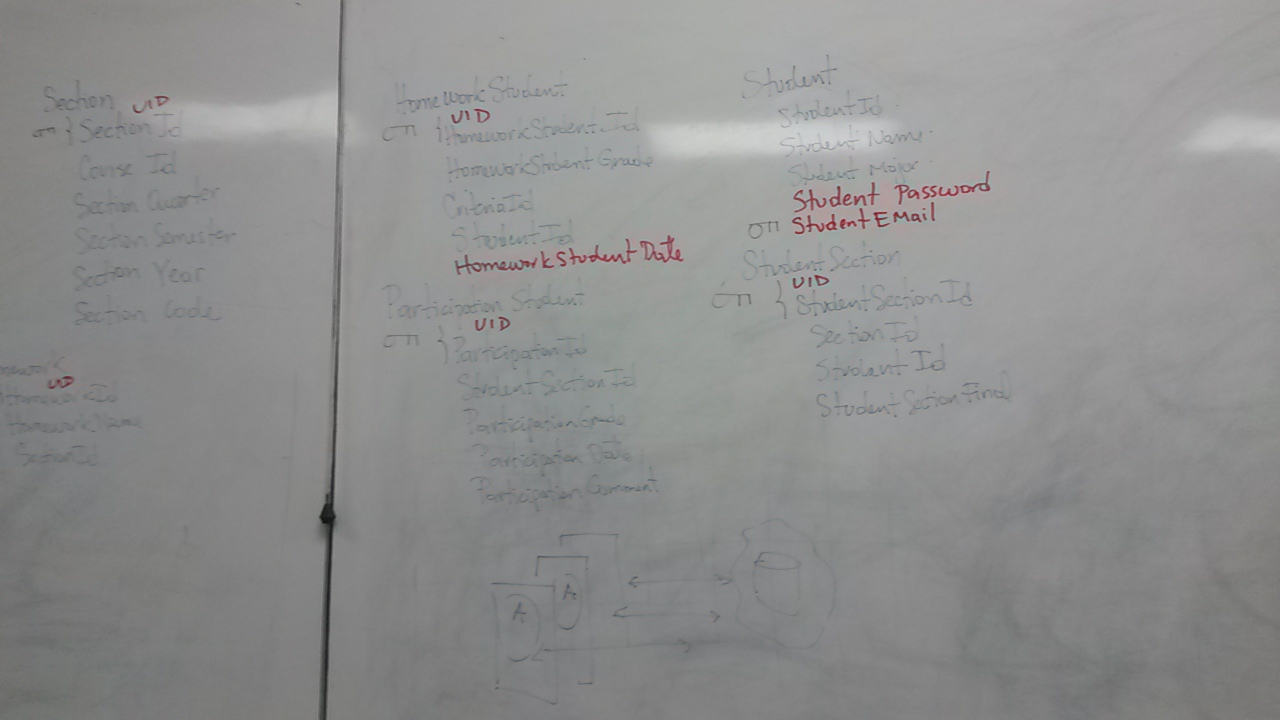 Section
UID
Section Id
Course Id
Section Quarter
Section Semester
Section Year
Section Code
UID
HomeworkId
HomeworkName
SectionId
Homework Student
UID
HomeworkStudent Id
HomeworkStudent Grade
CriteriaId
StudentId
HomeworkStudent Date
Participation Student
UID
ParticipationId
StudentSectionId
ParticipationGrade
Participation Date
Participation Comment
Student
StudentId
Student Name
Student Major
Student Password
StudentEMail
StudentSection
UID
StudentSectionId
SectionId
Student Id
StudentSectionFinal
A
A